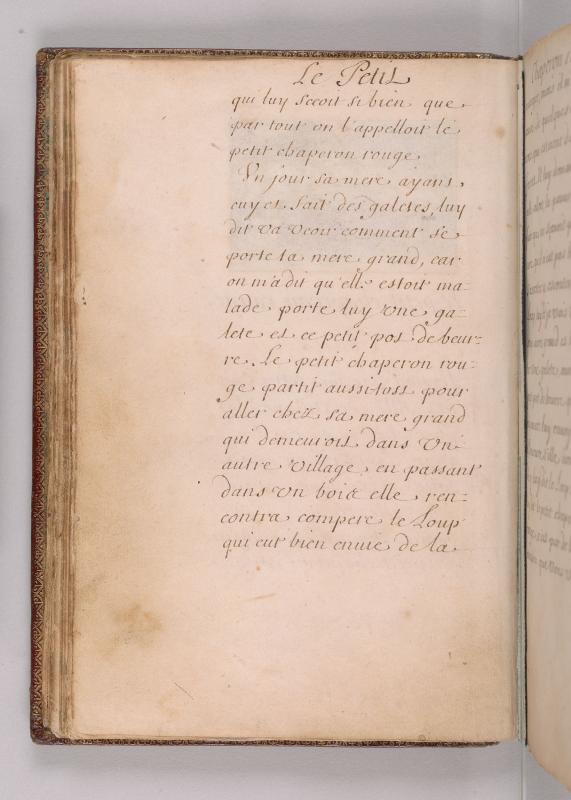 Le Petit
qui luy seeoit si bien que
par tout on l'appelloit le
petit chaperon rouge.
Un jour sa mere ayant
cuy et fait des galetes, luy
dit va veoir comment se
porte ta mere grand, car
on m'a dit qu'elle estoit ma-
lade, porte luy une ga-
lete et ce petit pot de beur-
re. Le petit chaperon rou-
ge partit aussi-tost pour
aller chez sa mere grand
qui demeuroit dans un
autre village, en passant
dans un bois elle ren-
contra compere le Loup
qui eut bien envie de la